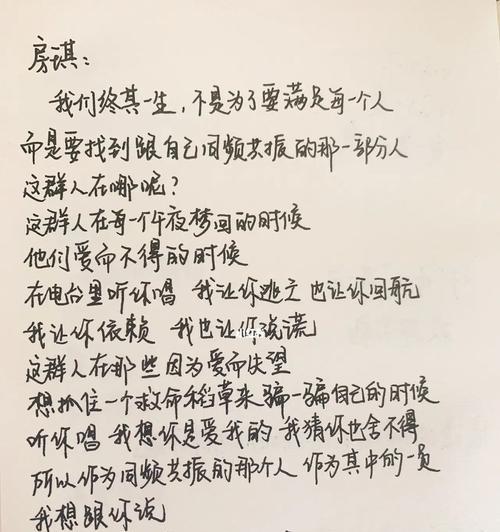 房琪：
我们终其一生，不是为了要满足每一个人
而是要找到跟自己同频共振的那一部分人
这群人在哪呢？
这群人在每一个午夜梦回的时候
他们爱而不得的时候
在电台里听你唱 我让你逃亡 也让你回航
我让你依赖 我也让你说谎
这群人在那些因为爱而失望
想抓住一个救命稻草来骗一骗自己的时候
听你唱 我想你是爱我的 我猜你也舍不得
所以作为同频共振的那个人 作为其中的一员
我想跟你说